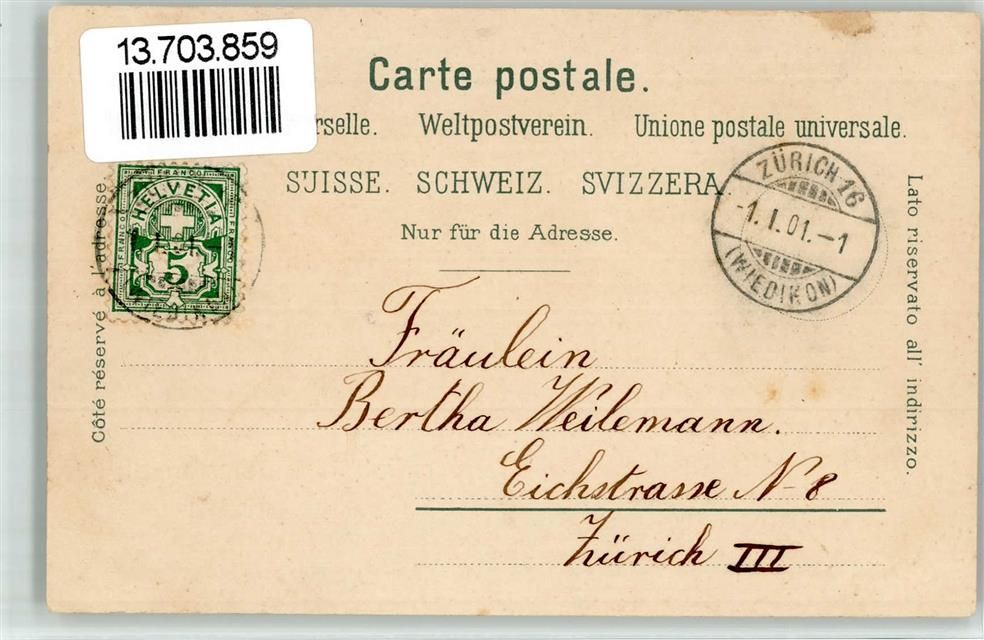 13.703.859
Carte postale.
rselle. Weltpostverein. Unione postale universale.
SUISSE. SCHWEIZ. SVIZZERA.
Nur für die Adresse.
Côté réservé à l'adresse
Lato riservato all' indirizzo.
FRANCO
HELVETIA
FRANCO
FRANCO
5
ZÜRICH 16
-1. I. 01.-1
(WIEDIKON)
Fräulein
Bertha Weilemann.
Eichstrasse N- 8
Zürich III